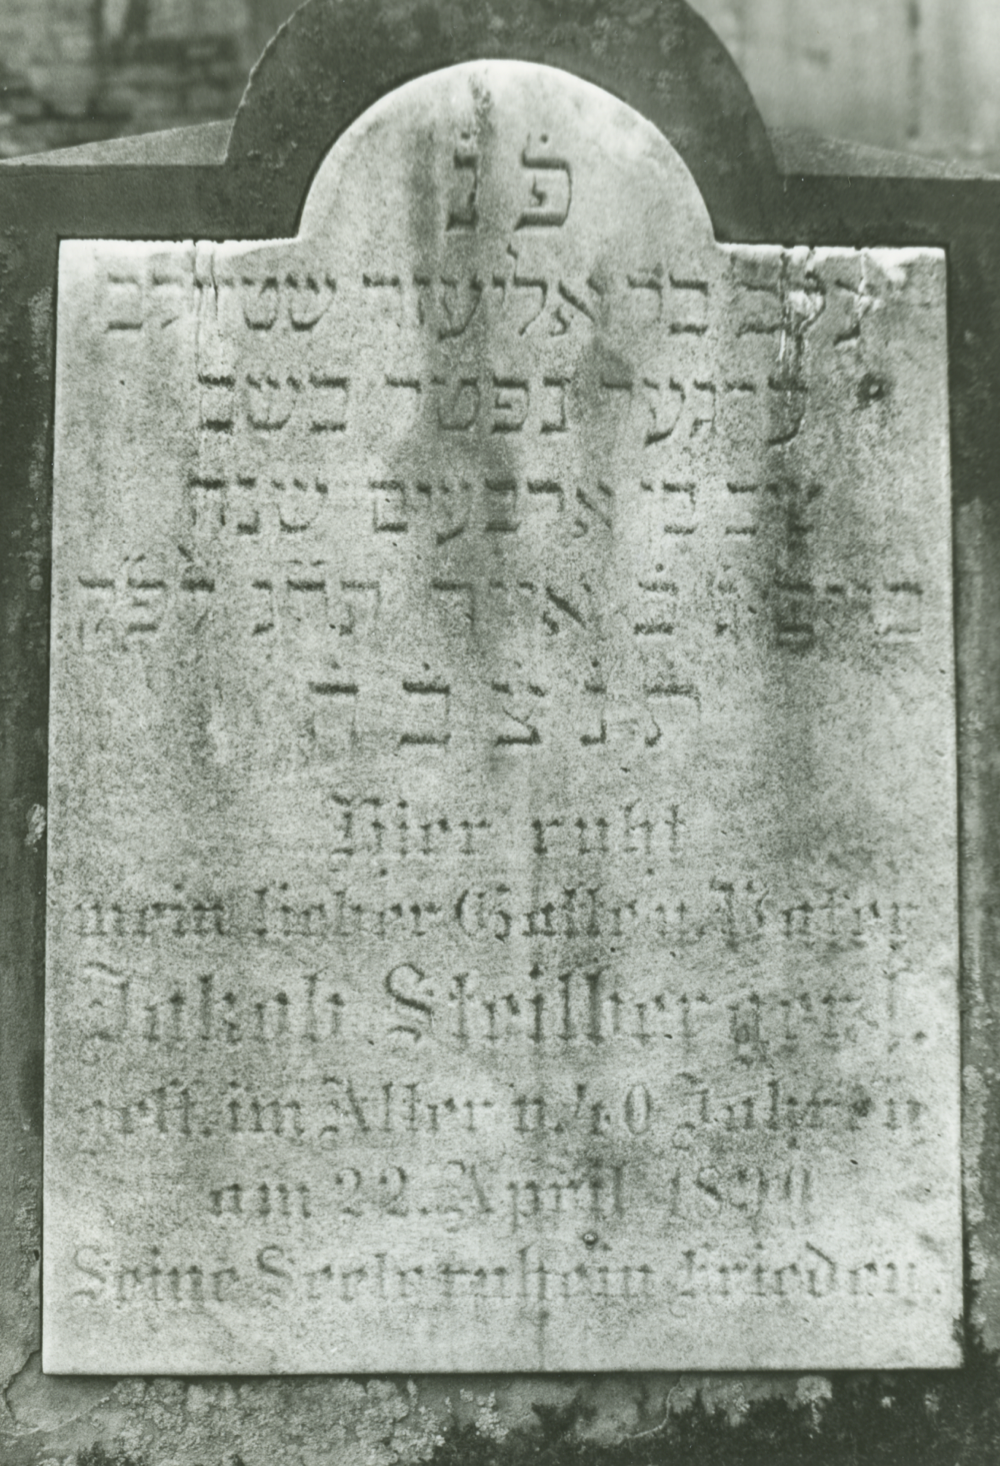 פ נ
יעקב בר אליעזר שטיילב
ערגער נפטר בשב
בן ארבעים שנה
ביום ג׳ ב׳ אייר תר״ן לפ״ק
ת נ צ ב ה
Hier ruht
mein lieber Gatte u. Vater
Jakob Steilberger
gest. im Alter v. 40 Jahren
am 22. April 1890
Seine Seele ruhe in Frieden.